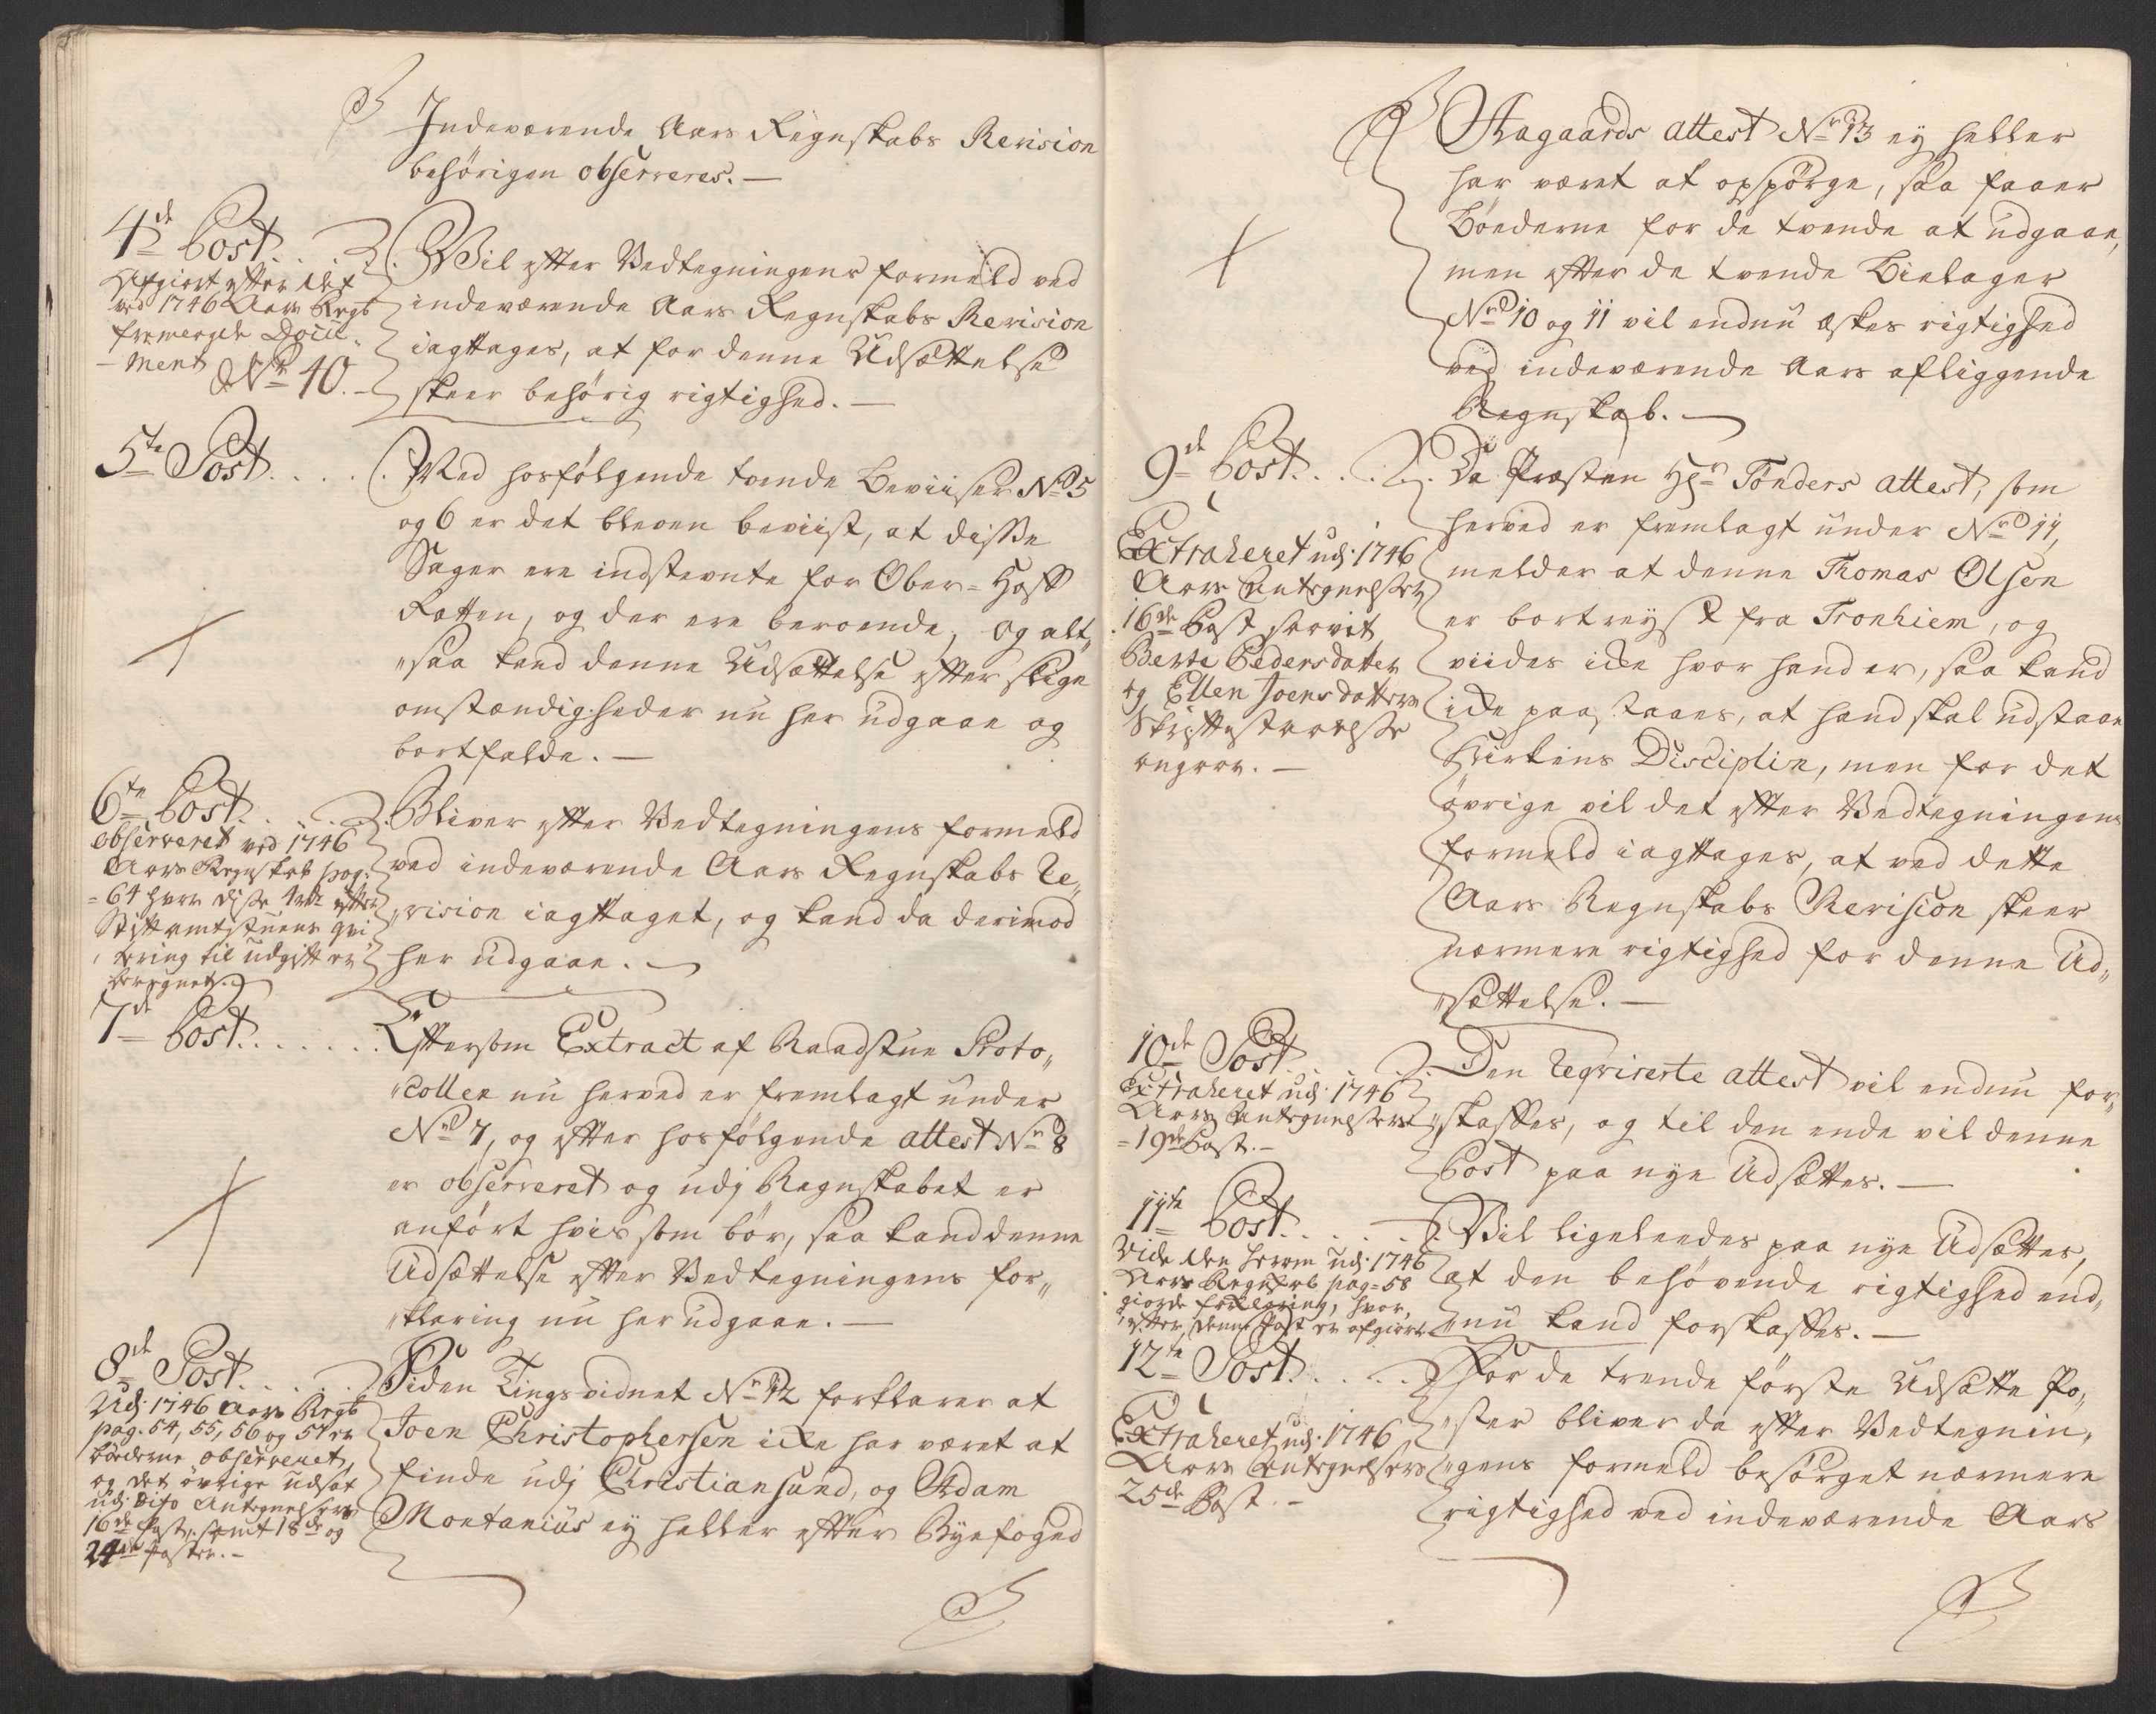 Indeværende Aars Regnskabs Revision
behörigen observeres. —
4de Post . . .
Afgiort efter det
ved 1746 Aars Regsb
fremlagde Docu-
ment No 10. —
Wil efter Vedtegningens formeld ved
indeværende Aars Regnskabs Revision
iagttages, at for denne Udsættelse
skeer behörig rigtighed. —
5te Post . . . .
Med hosfölgende tvende Beviiser No 5
og 6 er det bleven beviist, at disse
Sager ere indstevnte for Ober-Hoff
Retten, og der ere beroende, og alt„
„saa kand denne Udsættelse efter slige
omstændigheder nu her udgaae og
bortfalde. —
6te Post . . .
observeret ved 1746
Aars Regnskab pag:
64 hvor disse 4rdr efter
Stiftamtstuens qvi
tering til udgift er
beregnet.
Bliver efter Vedtegningens formeld
ved indeværende Aars Regnskabs Re„
„vision iagttaget, og kand da derimod
her udgaae. —
7de Post . . . . . .
Eftersom Extract af Raadstue Proto„
„collen nu herved er fremlagt under
No 7, og efter hosfölgende attest No 8
er observeret og udj Regnskabet er
anfört hvis som bör, saa kand denne
Udsættelse efter Vedtegningens for„
„klaring nu her udgaae. —
8de Post . . . .
Udj 1746 Aars Regsb
pag. 54, 55, 56 og 57 er
bönderne observeret,
og det övrige udsat
udj dito Antegnelsers
16de Post, samt 18de og
24de Poster. —
Siden Tingsvidnet No 12 forklarer at
Joen Christophersen icke har været at
finde udj Christiansund, og Adam
Montanius ey heller efter Byefoged
Aagaards attest No 13 ey heller
har været at opspörge, saa faaer
Böederne for de tvende at udgaae,
men efter de tvende Bielager
No 10 og 11 vil endnu æskes rigtighed
ved indeværende Aars afliggende
Regnskab. —
9de Post . . .
Extraheret udj 1746
Aars Antegnelsers
16de Post saavit
Berte Pedersdatter
og Ellen Joensdatters
Skriftestaaelsse
angaar. —
Da Præsten Hr Tönders attest, som
herved er fremlagt under No 11,
melder at denne Thomas Olsen
er bortreyst fra Tronhiem, og
viides icke hvor hand er, saa kand
icke paastaaes, at hand skal udstaae
Kirkens Disciplin, men for det
övrige vil det efter Vedtegningens
formeld iagttages, at ved dette
Aars Regnskabs Revision skeer
nærmere rigtighed for denne Ud„
„sættelse. —
10de Post . . . .
Extraheret udj 1746
Aars Antegnelsers
19de Post. —
Den reqvirerte attest vil endnu for„
„skaffes, og til den ende vil denne
Post paa nye Udsættes. —
11te Post . . . .
Vide den herom udj 1746
Aars Regnskab pag. 58
giorde forklaring, hvor„
efter denne Post er afgiort
Vil ligeleedes paa nye Udsættes,
at den behövende rigtighed end„
„nu kand forskaffes. —
12te Post . . . .
Extraheret udj 1746
Aars Antegnelsers
25de Post. —
For de trende förste Udsatte Po„
„ster bliver da efter Vedtegnin„
„gens formeld besörget nærmere
rigtighed ved indeværende Aars